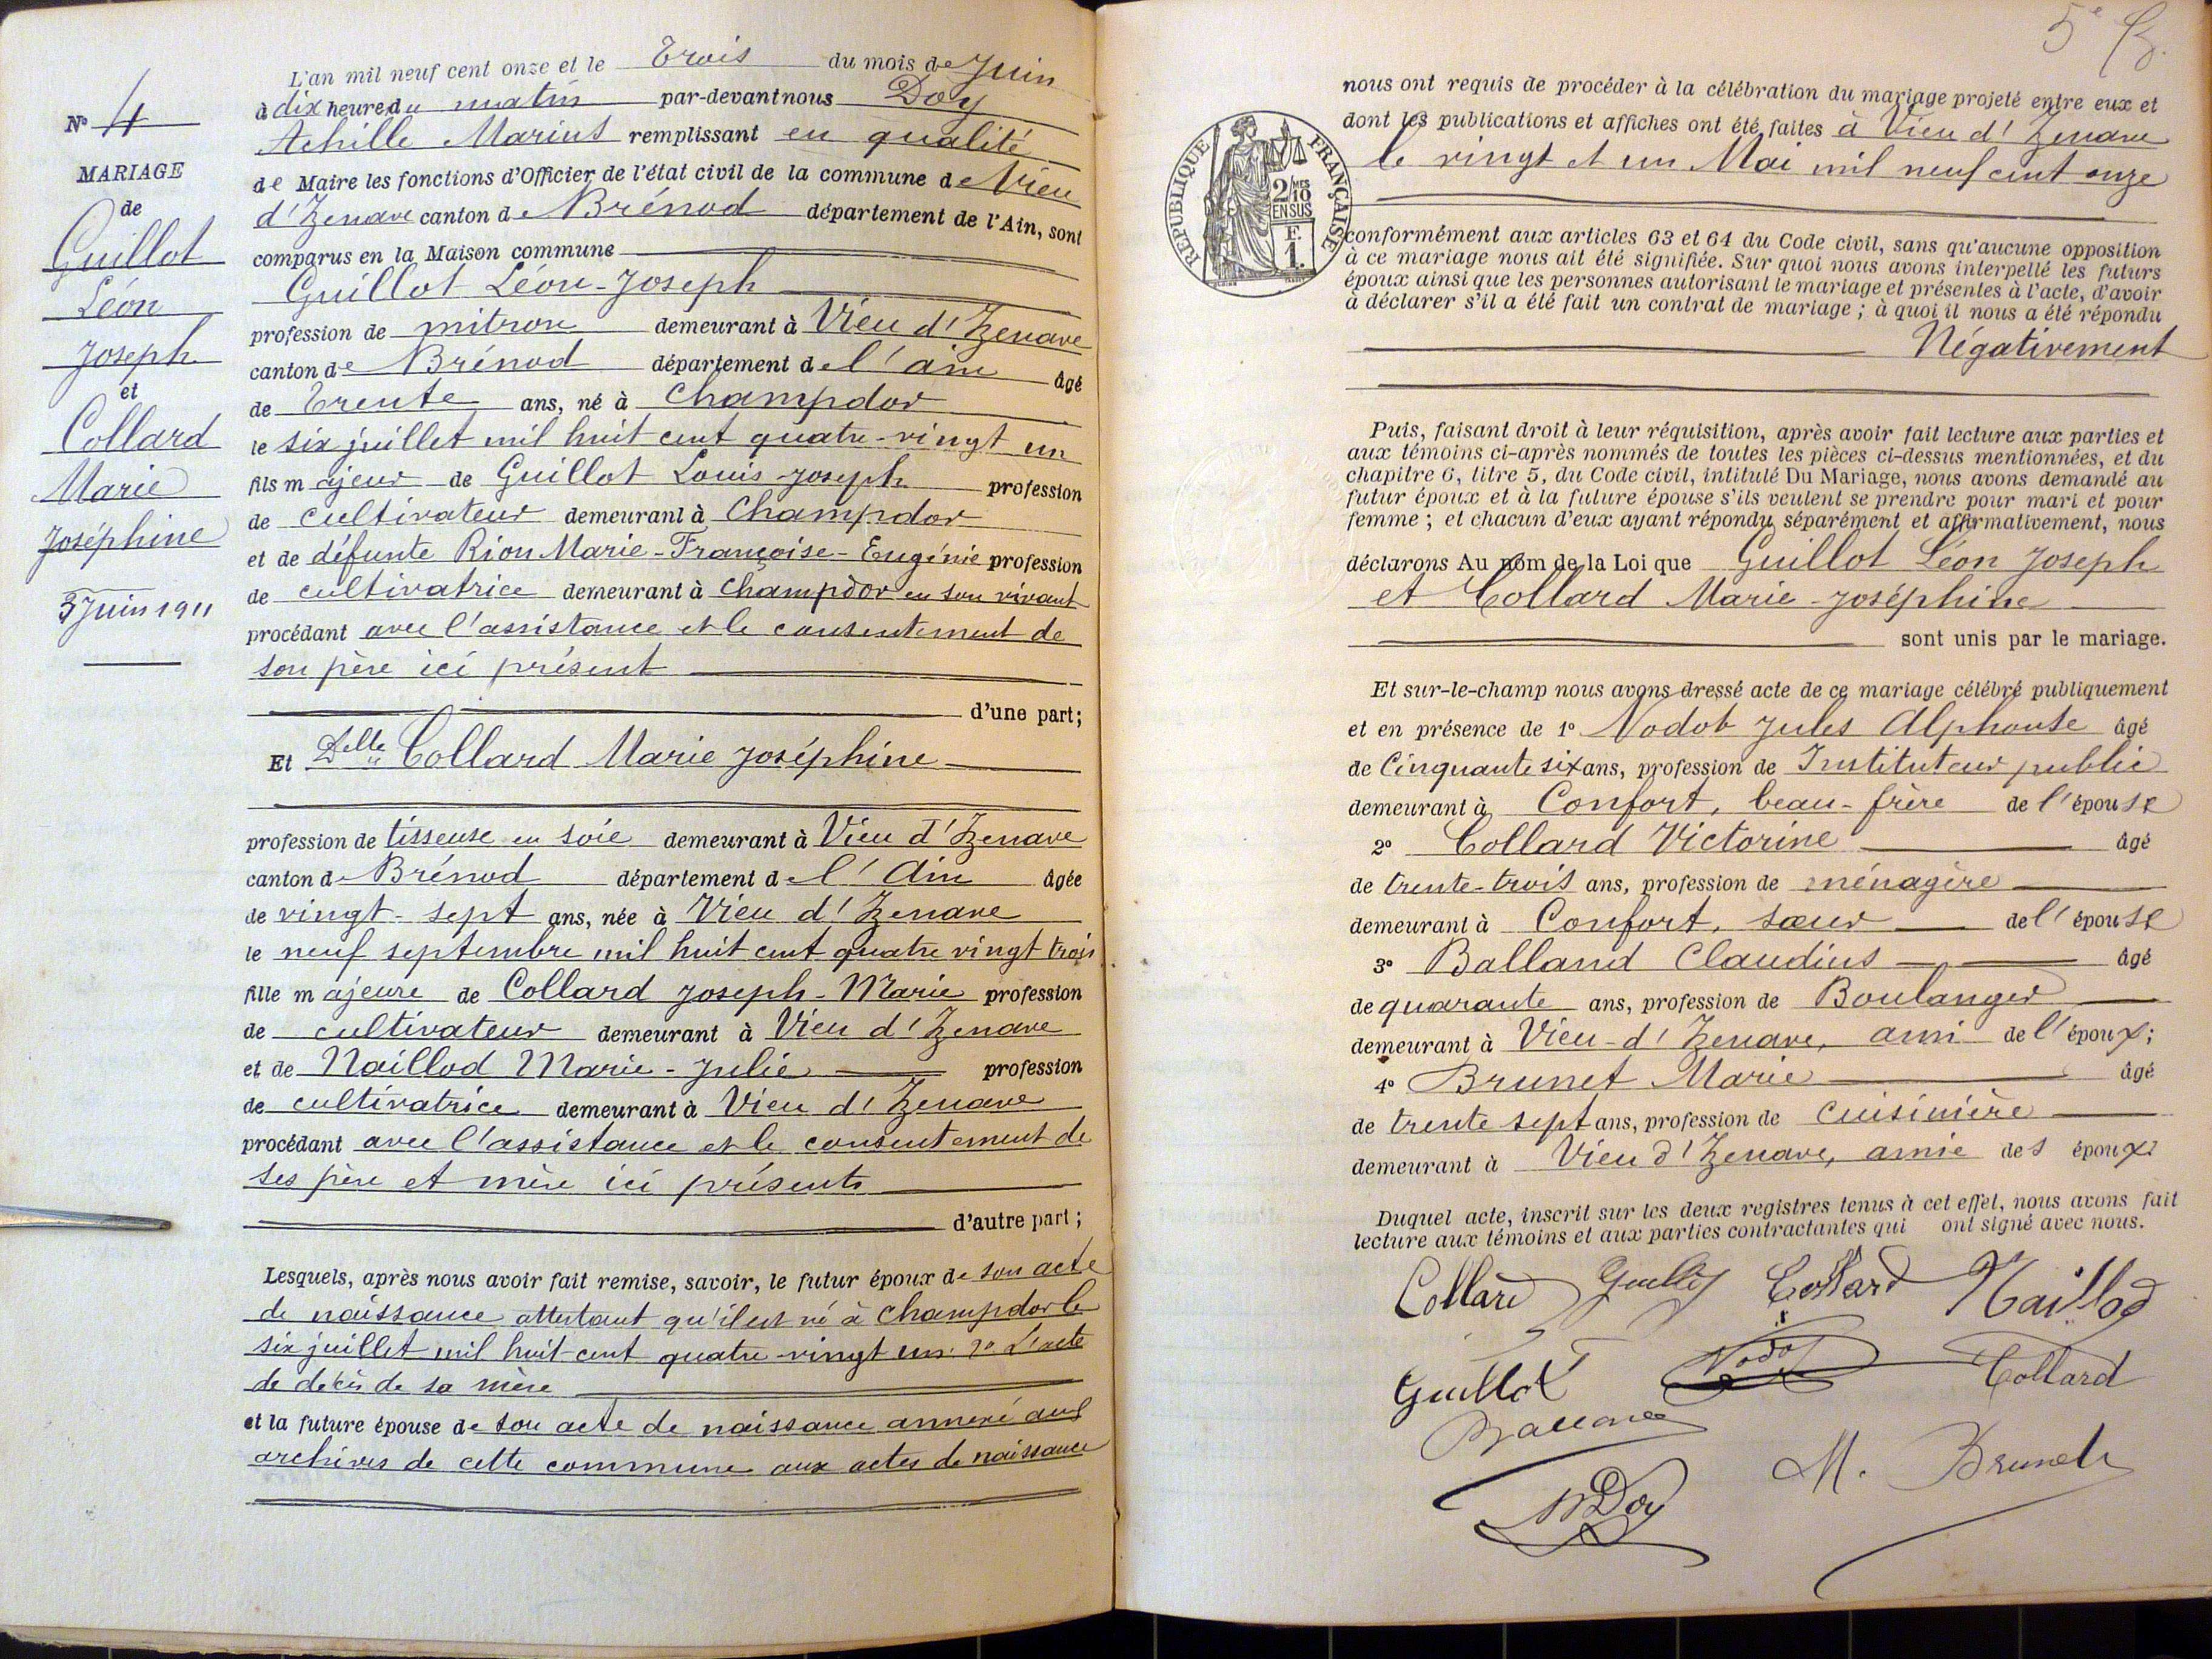 N° 4
MARIAGE
de
Guillot
Léon
Joseph
et
Collard
Marie
Joséphine
3 Juin 1911
L'an mil neuf cent onze et le Trois du mois de Juin
à dix heure du matin par-devant nous Doy
Achille Marius remplissant en qualité
de Maire les fonctions d'Officier de l'état civil de la commune de Vieu
d'Izenave canton de Brénod département de l'Ain, sont
comparus en la Maison commune
Guillot Léon-Joseph
profession de mitron demeurant à Vieu d'Izenave
canton de Brénod département de l'ain âgé
de Trente ans, né à Champdor
le six juillet mil huit cent quatre-vingt un
fils majeur de Guillot Louis-Joseph profession
de cultivateur demeurant à Champdor
et de défunte Rion Marie-Françoise-Eugénie profession
de cultivatrice demeurant à Champdor en son vivant
procédant avec l'assistance et le consentement de
son père ici présent
d'une part;
Et Delle Collard Marie Joséphine
profession de tisseuse en soie demeurant à Vieu d'Izenave
canton de Brénod département de l'Ain âgée
de vingt-sept ans, née à Vieu d'Izenave
le neuf septembre mil huit cent quatre vingt trois
fille majeure de Collard Joseph-Marie profession
de cultivateur demeurant à Vieu d'Izenave
et de Naillod Marie-Julie profession
de cultivatrice demeurant à Vieu d'Izenave
procédant avec l'assistance et le consentement de
ses père et mère ici présents
d'autre part;
Lesquels, après nous avoir fait remise, savoir, le futur époux de son acte
de naissance attestant qu'il est né à Champdor le
six juillet mil huit-cent quatre-vingt un 2° L'acte
de décès de sa mère
et la future épouse de son acte de naissance annexé aux
archives de cette commune aux actes de naissance
5e
nous ont requis de procéder à la célébration du mariage projeté entre eux et
dont les publications et affiches ont été faites à Vieu d'Izenave
le vingt et un Mai mil neuf cent onze
RÉPUBLIQUE FRANÇAISE
2/10 MES
EN SUS
F.
1.
conformément aux articles 63 et 64 du Code civil, sans qu'aucune opposition
à ce mariage nous ait été signifiée. Sur quoi nous avons interpellé les futurs
époux ainsi que les personnes autorisant le mariage et présentes à l'acte, d'avoir
à déclarer s'il a été fait un contrat de mariage ; à quoi il nous a été répondu
Négativement
Puis, faisant droit à leur réquisition, après avoir fait lecture aux parties et
aux témoins ci-après nommés de toutes les pièces ci-dessus mentionnées, et du
chapitre 6, titre 5, du Code civil, intitulé Du Mariage, nous avons demandé au
futur époux et à la future épouse s'ils veulent se prendre pour mari et pour
femme ; et chacun d'eux ayant répondu séparément et affirmativement, nous
déclarons Au nom de la Loi que Guillot Léon Joseph
et Collard Marie-Joséphine
sont unis par le mariage.
Et sur-le-champ nous avons dressé acte de ce mariage célébré publiquement
et en présence de 1° Nodot Jules Alphonse âgé
de Cinquante six ans, profession de Instituteur public
demeurant à Confort, beau-frère de l'épouse
2° Collard Victorine âgé
de trente-trois ans, profession de ménagère
demeurant à Confort, sœur de l'épouse
3° Balland Claudius âgé
de quarante ans, profession de Boulanger
demeurant à Vieu-d'Izenave, ami de l'époux;
4° Brunet Marie âgé
de trente sept ans, profession de cuisinière
demeurant à Vieu d'Izenave, amie des époux
Duquel acte, inscrit sur les deux registres tenus à cet effet, nous avons fait
lecture aux témoins et aux parties contractantes qui ont signé avec nous.
Collard Guillot Collard Naillod
Guillot Nodot Collard
Balland
M. Brunet
Doy